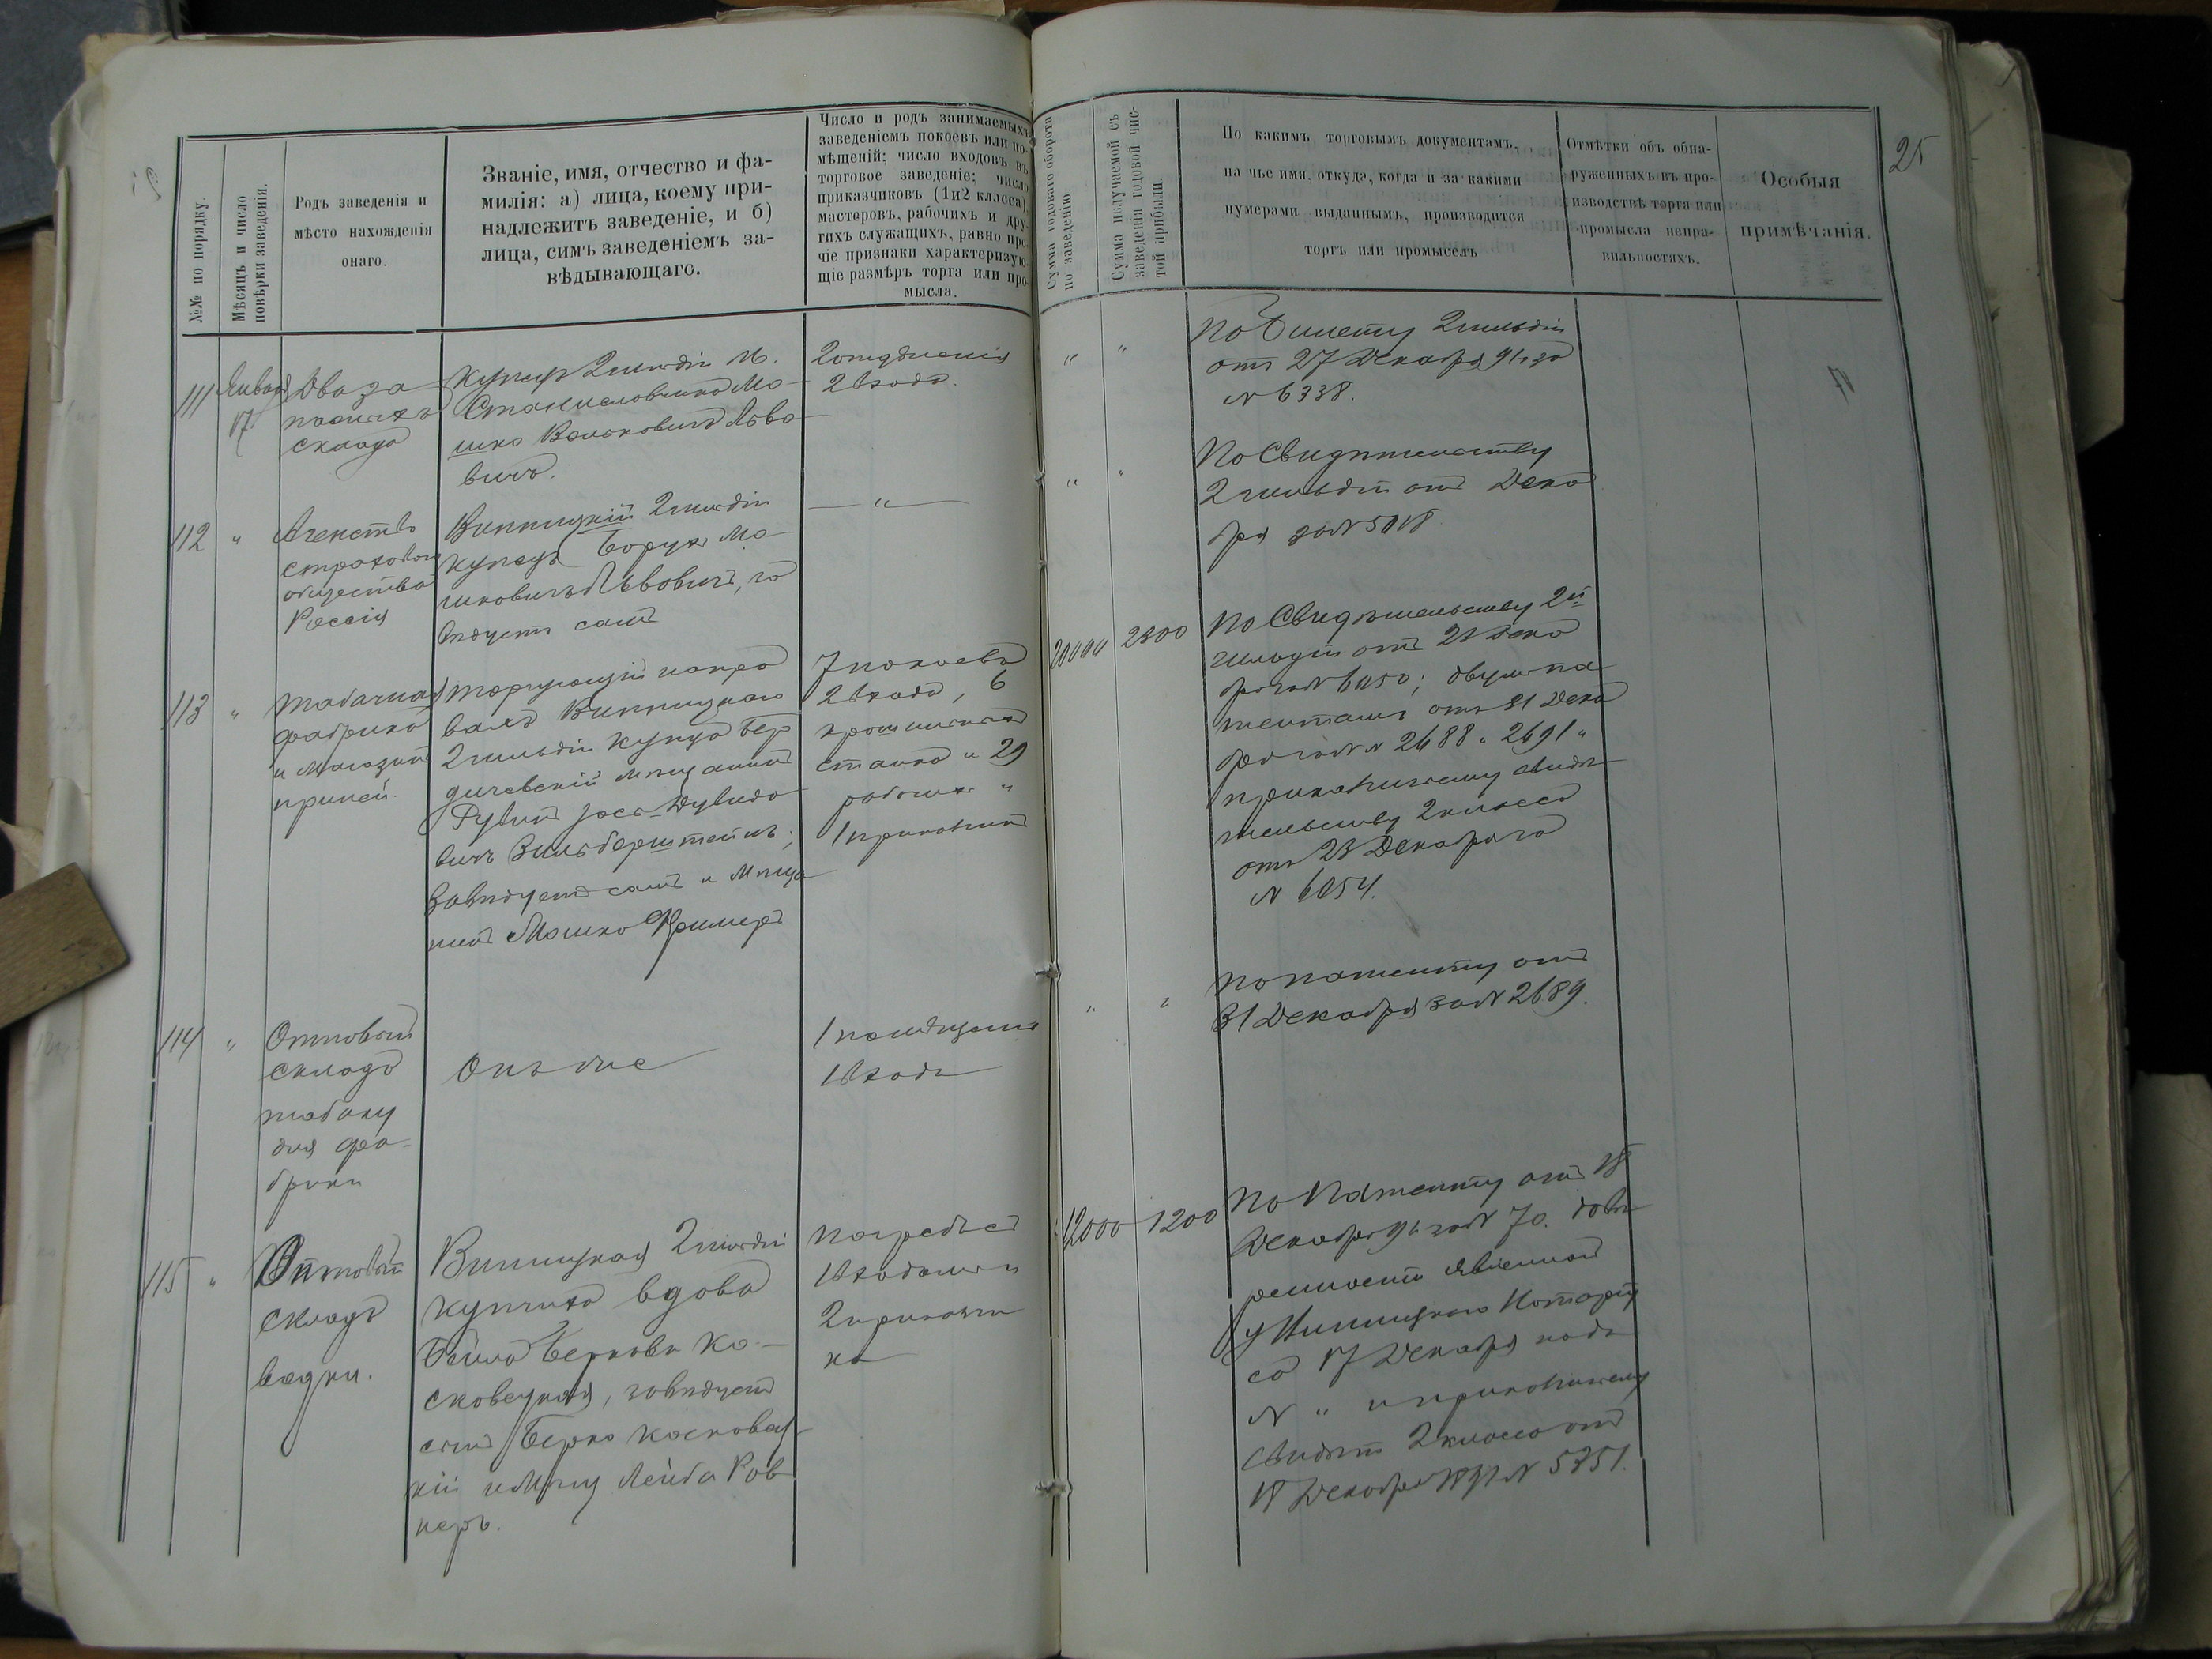 25
№№ по порядку.
Мѣсяцъ и число
повѣрки заведенія.
Родъ заведенія и
мѣсто нахожденія
онаго.
Званіе, имя, отчество и фа-
милія: а) лица, коему при-
надлежитъ заведеніе, и б)
лица, симъ заведеніемъ за-
вѣдывающаго.
Число и родъ занимаемыхъ
заведеніемъ покоевъ или по-
мѣщеній; число входовъ въ
торговое заведеніе; число
приказчиковъ (1 и 2 класса),
мастеровъ, рабочихъ и дру-
гихъ служащихъ, равно про-
чіе признаки характеризую-
щіе размѣръ торга или про-
мысла.
Сумма годоваго оборота
по заведенію.
Сумма получаемой съ
заведенія годовой чис-
той прибыли.
По какимъ торговымъ документамъ,
на чье имя, откуда, когда и за какими
нумерами выданнымъ, производится
торгъ или промыселъ
Отмѣтки объ обна-
руженныхъ въ про-
изводствѣ торга или
промысла непра-
вильностяхъ.
Особыя
примѣчанія.
111
Января
17
Два за
склада
Купецъ 2 гильдіи М.
Станиславчика Мо-
шко Вольковичъ Льво
вичъ.
2 отдѣленія
2 входа.
" "
По билету 2 гильдіи
отъ 27 Декабря 91 г. за
№ 6338.
112 "
Агенство
страховаго
общества
Россія
Винницкій 2 гильдіи
купецъ Борухъ Мо-
шковичъ Львовичъ, за
вѣдуетъ самъ
— " —
" "
По Свидѣтельству
2 гильдіи отъ Дека
бря за № 5018
113 "
Табачная
фабрика
и магазинъ
при ней.
Торгующій на пра
вахъ Винницкаго
2 гильдіи купца Бер
дичевскій мѣщанинъ
Рувинъ Іось-Дувидо
вичъ Зильберштейнъ;
завѣдуетъ самъ и мѣща
нинъ Мошко Фримеръ
7 покоевъ
2 входа, 6
станка и 29
рабочихъ "
1 прикащикъ
20000
2300
По Свидѣтельству 2й
гильдіи отъ 23 Дека
бря за № 6050; двумъ па
тентамъ отъ 31 Дека
бря за № № 2688 и 2691 "
прикащичьему свидѣ
тельству 2 класса
отъ 23 Декабря за
№ 6054.
114 "
Оптовый
складъ
табаку
для фа-
брики
Онъ же
1 помѣщеніе
1 входъ
" "
По патенту отъ
31 Декабря за № 2689.
115 "
Оптовый
складъ
водки.
Винницкая 2 гильдіи
купчиха вдова
Бейла Беркова Ко-
сковецкая, завѣдуетъ
сынъ Берко Косковец-
кій и мѣщ Лейба Ров
неръ.
Погребъ съ
1 входомъ и
2 прикащи
ка
12000
1200
По Патенту отъ 18
Декабря 91 за № 70. довѣ
ренности явленной
у Винницкаго Нотаріу
са 17 Декабря подъ
№ " и прикащичьему
свидѣт 2 класса отъ
18 Декабря 1891 № 5351.